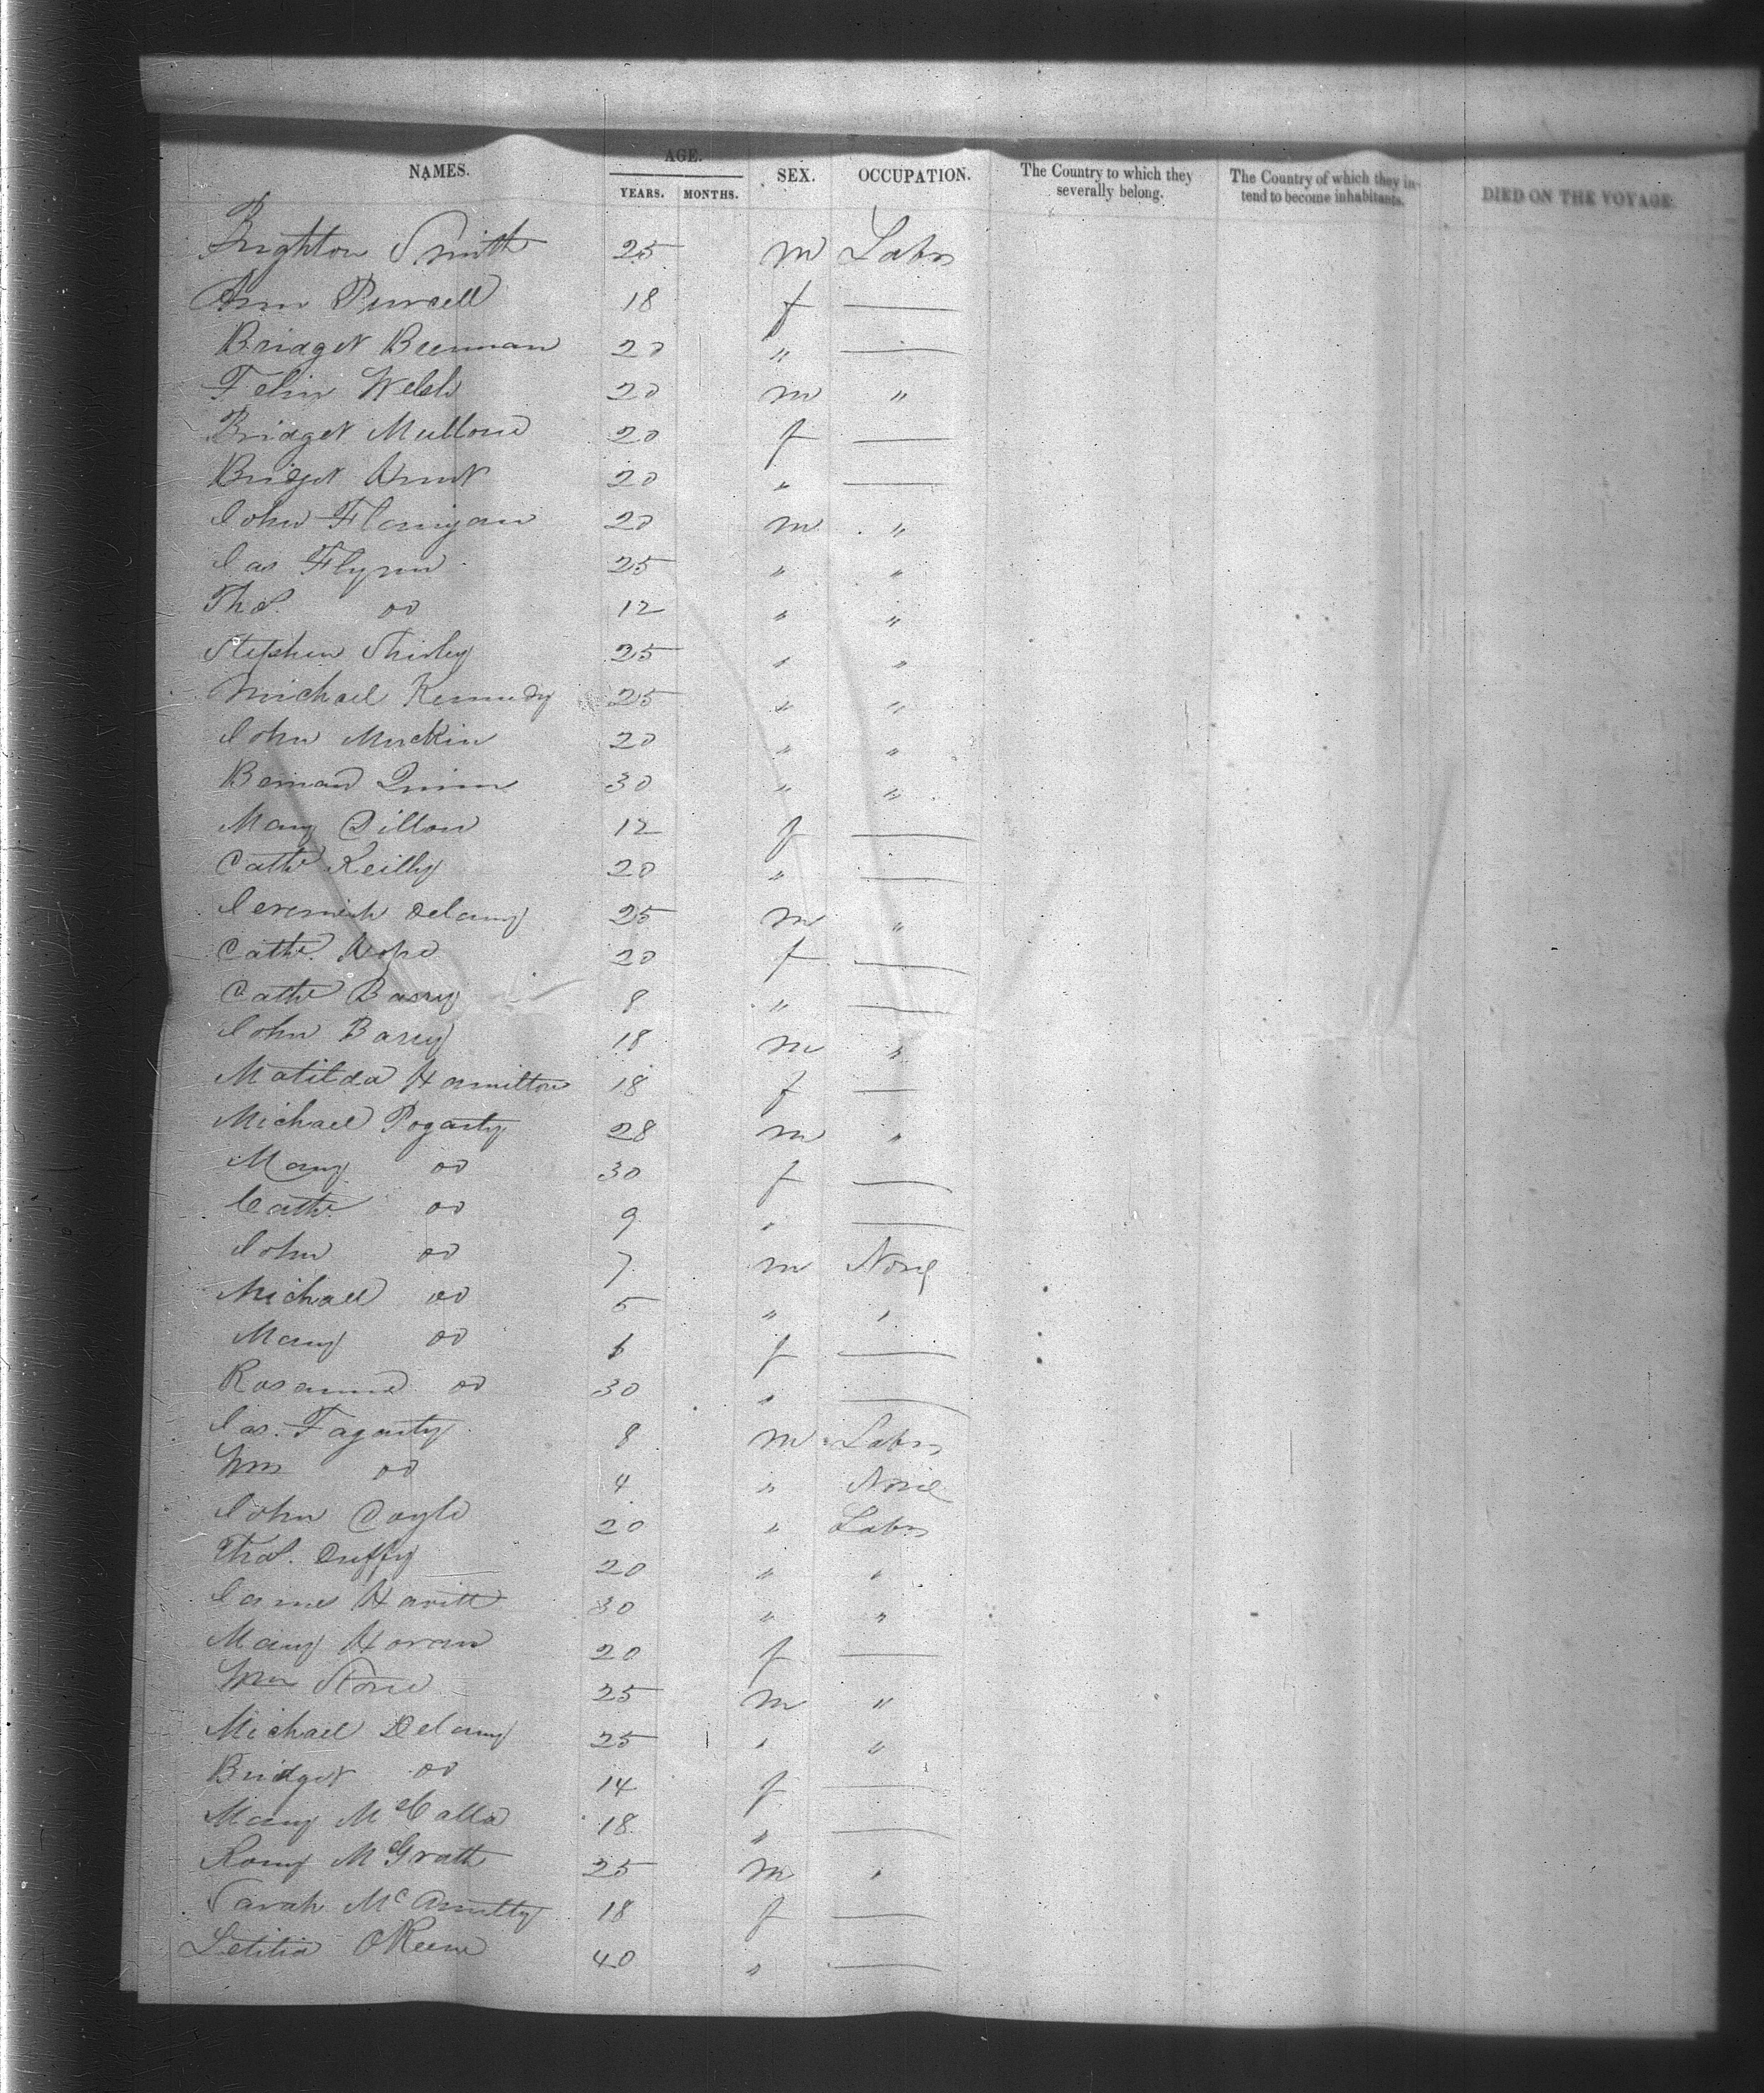 NAMES. AGE. YEARS. MONTHS. SEX. OCCUPATION. The Country to which they severally belong. The Country of which they intend to become inhabitants. DIED ON THE VOYAGE.
Smith 25 m Labr
Ann Purcell 18 f —
Bridget Brennan 20 " —
Welsh 20 m "
Bridget Mullone 20 f —
Bridget 20 " —
John Flanigan 20 m "
Jas Flynn 25 " "
Thos. do 12 " "
Stephen 25 " "
Michael Kennedy 25 " "
John Muckin 20 " "
Bernard Quinn 30 " "
Mary Dillon 12 f —
Cathe Reilly 20 " —
Jeremiah Delany 25 m "
Cathe. Hope 20 f —
Cathe Barry 8 " —
John Barry 18 m "
Matilda Hamilton 18 f —
Michael Fogarty 28 m "
Mary do 30 f —
Cathe do 9 " —
John do 7 m None
Michael do 5 " "
Mary do f —
Rosanna do 30 " —
Jas. Fagarty 8 m Labr
Wm do 4 " None
John Coyle 20 " Labr
Thos. Duffy 20 " "
James 30 " "
Mary Horan 20 f —
Wm Stone 25 m "
Michael Delany 25 " "
Bridget do 14 f —
Mary McCalla 18 " —
McGrath 25 m "
Sarah 18 f —
Letitia OKeene 40 " —